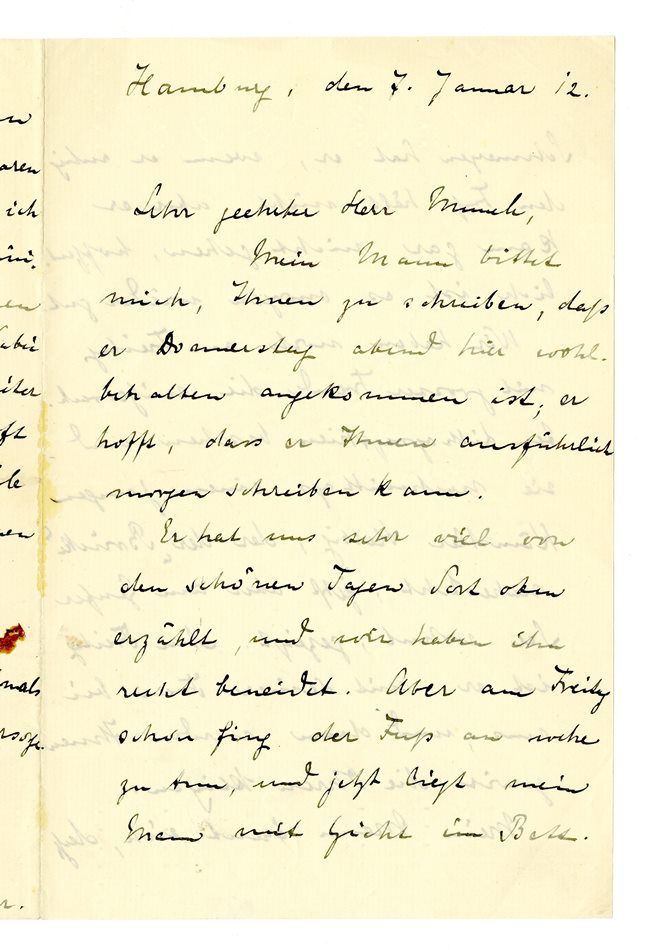 Hamburg, den 7. Januar 12.
Sehr geehrter Herr Munch,
Mein Mann bittet
mich, Ihnen zu schreiben, daß
er Donnerstag abend hier wohl-
behalten angekommen ist; er
hofft, dass er Ihnen ausführlich
morgen schreiben kann.
Er hat uns sehr viel von
den schönen Tagen dort oben
erzählt, und wir haben ihn
recht beneidet. Aber am Freitag
schon fing der Fuß an wehe
zu tun, und jetzt liegt mein
Mann mit Gicht im Bett.
ich